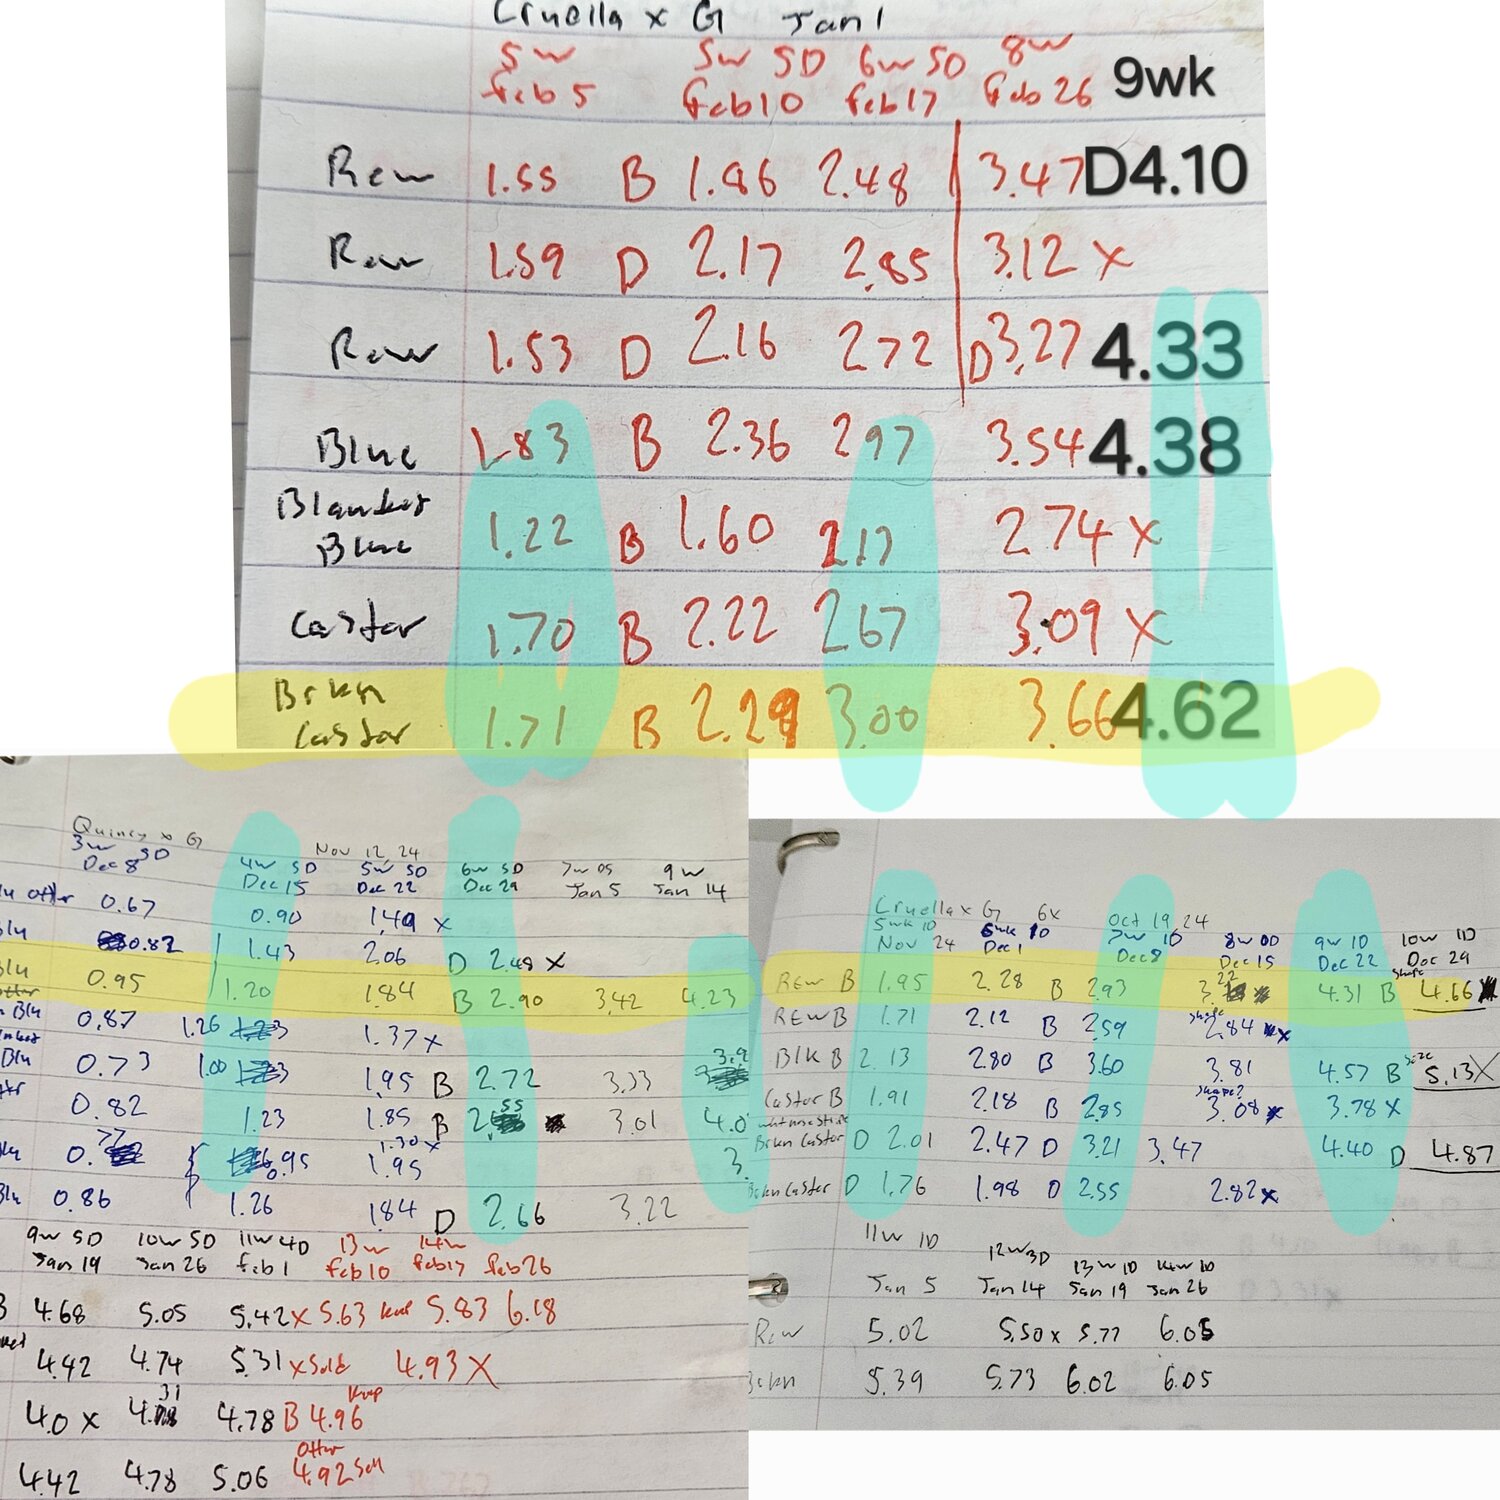 Cruella x G Jan 1
5w 5w 5D 6w 5D 8w 9wk
feb 5 feb 10 feb 17 feb 26
Rew 1.55 B 1.86 2.48 3.47 D4.10
Rew 1.59 D 2.17 2.85 3.12 x
Rew 1.53 D 2.16 2.72 D 3.27 4.33
Blue 1.83 B 2.36 2.97 3.54 4.38
Blanket
Blue 1.22 B 1.60 2.17 2.74 x
Castor 1.70 B 2.22 2.67 3.09 x
Brkn
Castor 1.71 B 2.29 3.00 3.66 4.62
Quincy x G Nov 12, 24
3w 5D 4w 5D 5w 5D 6w 5D 7w 05 9w
Dec 8 Dec 15 Dec 22 Dec 29 Jan 5 Jan 14
otter 0.67 0.90 1.49 x
0.82 1.43 2.06 D 2.48 x
Blu 0.95 1.20 1.84 B 2.90 3.42 4.23
Blu 0.87 1.26 1.37 x
Blu 0.73 1.00 1.95 B 2.72 3.33 3.9
0.82 1.23 1.85 B 2.55 3.01 4.0
1.30 x
0.77 0.95 1.95 3.
0.86 1.26 1.84 D 2.66 3.22
9w 5D 10w 5D 11w 4D 13w 14w
Jan 19 Jan 26 feb 1 feb 10 feb 17 feb 26
4.68 5.05 5.42 x 5.63 keep 5.83 6.18
4.42 4.74 5.31 x Sold 4.93 X
4.0 x 4.31 4.78 B 4.96 keep
4.42 4.78 5.06 otter 4.92 sell
Cruella x G 6x Oct 19, 24
5wk 1D 6wk 1D 7w 1D 8w 0D 9w 1D 10w 1D
Nov 24 Dec 1 Dec 8 Dec 15 Dec 22 Dec 29
REW B 1.95 2.28 B 2.93 3.22 4.31 B shape 4.66 x
REW B 1.71 2.12 B 2.59 shape 2.84 x
Blk B 2.13 2.80 B 3.60 3.81 4.57 B size 5.13 X
Castor B 1.91 2.18 B 2.85 shape? 3.08 x 3.78 x
Brkn Castor D 2.01 2.47 D 3.21 3.47 4.40 D 4.87
Brkn Castor D 1.76 1.98 D 2.55 2.82 x
11w 1D 12w 3D 13w 1D 14w 1D
Jan 5 Jan 14 Jan 19 Jan 26
Rew 5.02 5.50 x 5.77 6.05
Brkn 5.39 5.73 6.02 6.05